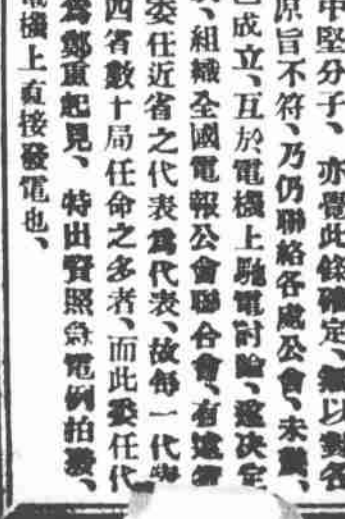 中堅分子、亦覺此條確定、無以對各
原旨不符、乃仍聯絡各處公會、未幾、
已成立、互於電機上馳電討論、遂決定
、組織全國電報公會聯合會、有遠
委任近省之代表爲代表、故每一代
四省數十局任命之多者、而此委任代
爲鄭重起見、特出資照急電例拍發、
電機上直接發電也、